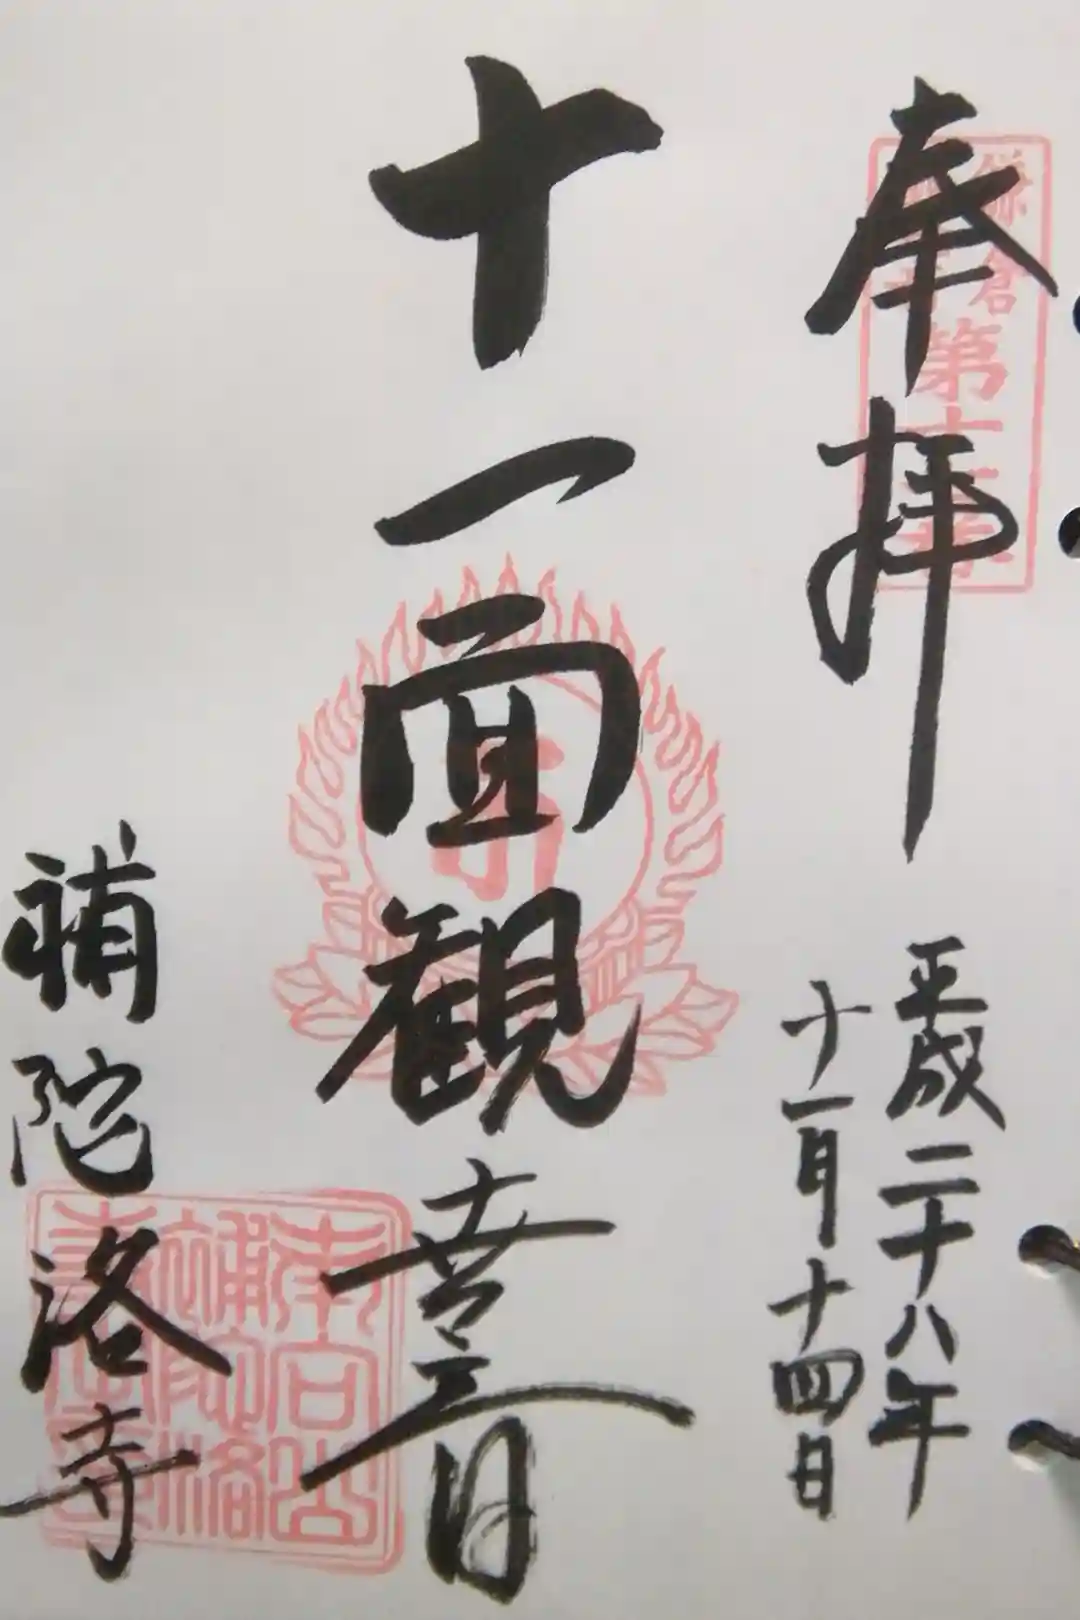 奉拝
平成二十八年
十一月十四日
十一面観世音
補陀洛寺
鎌倉
第十
南向山
補陀洛